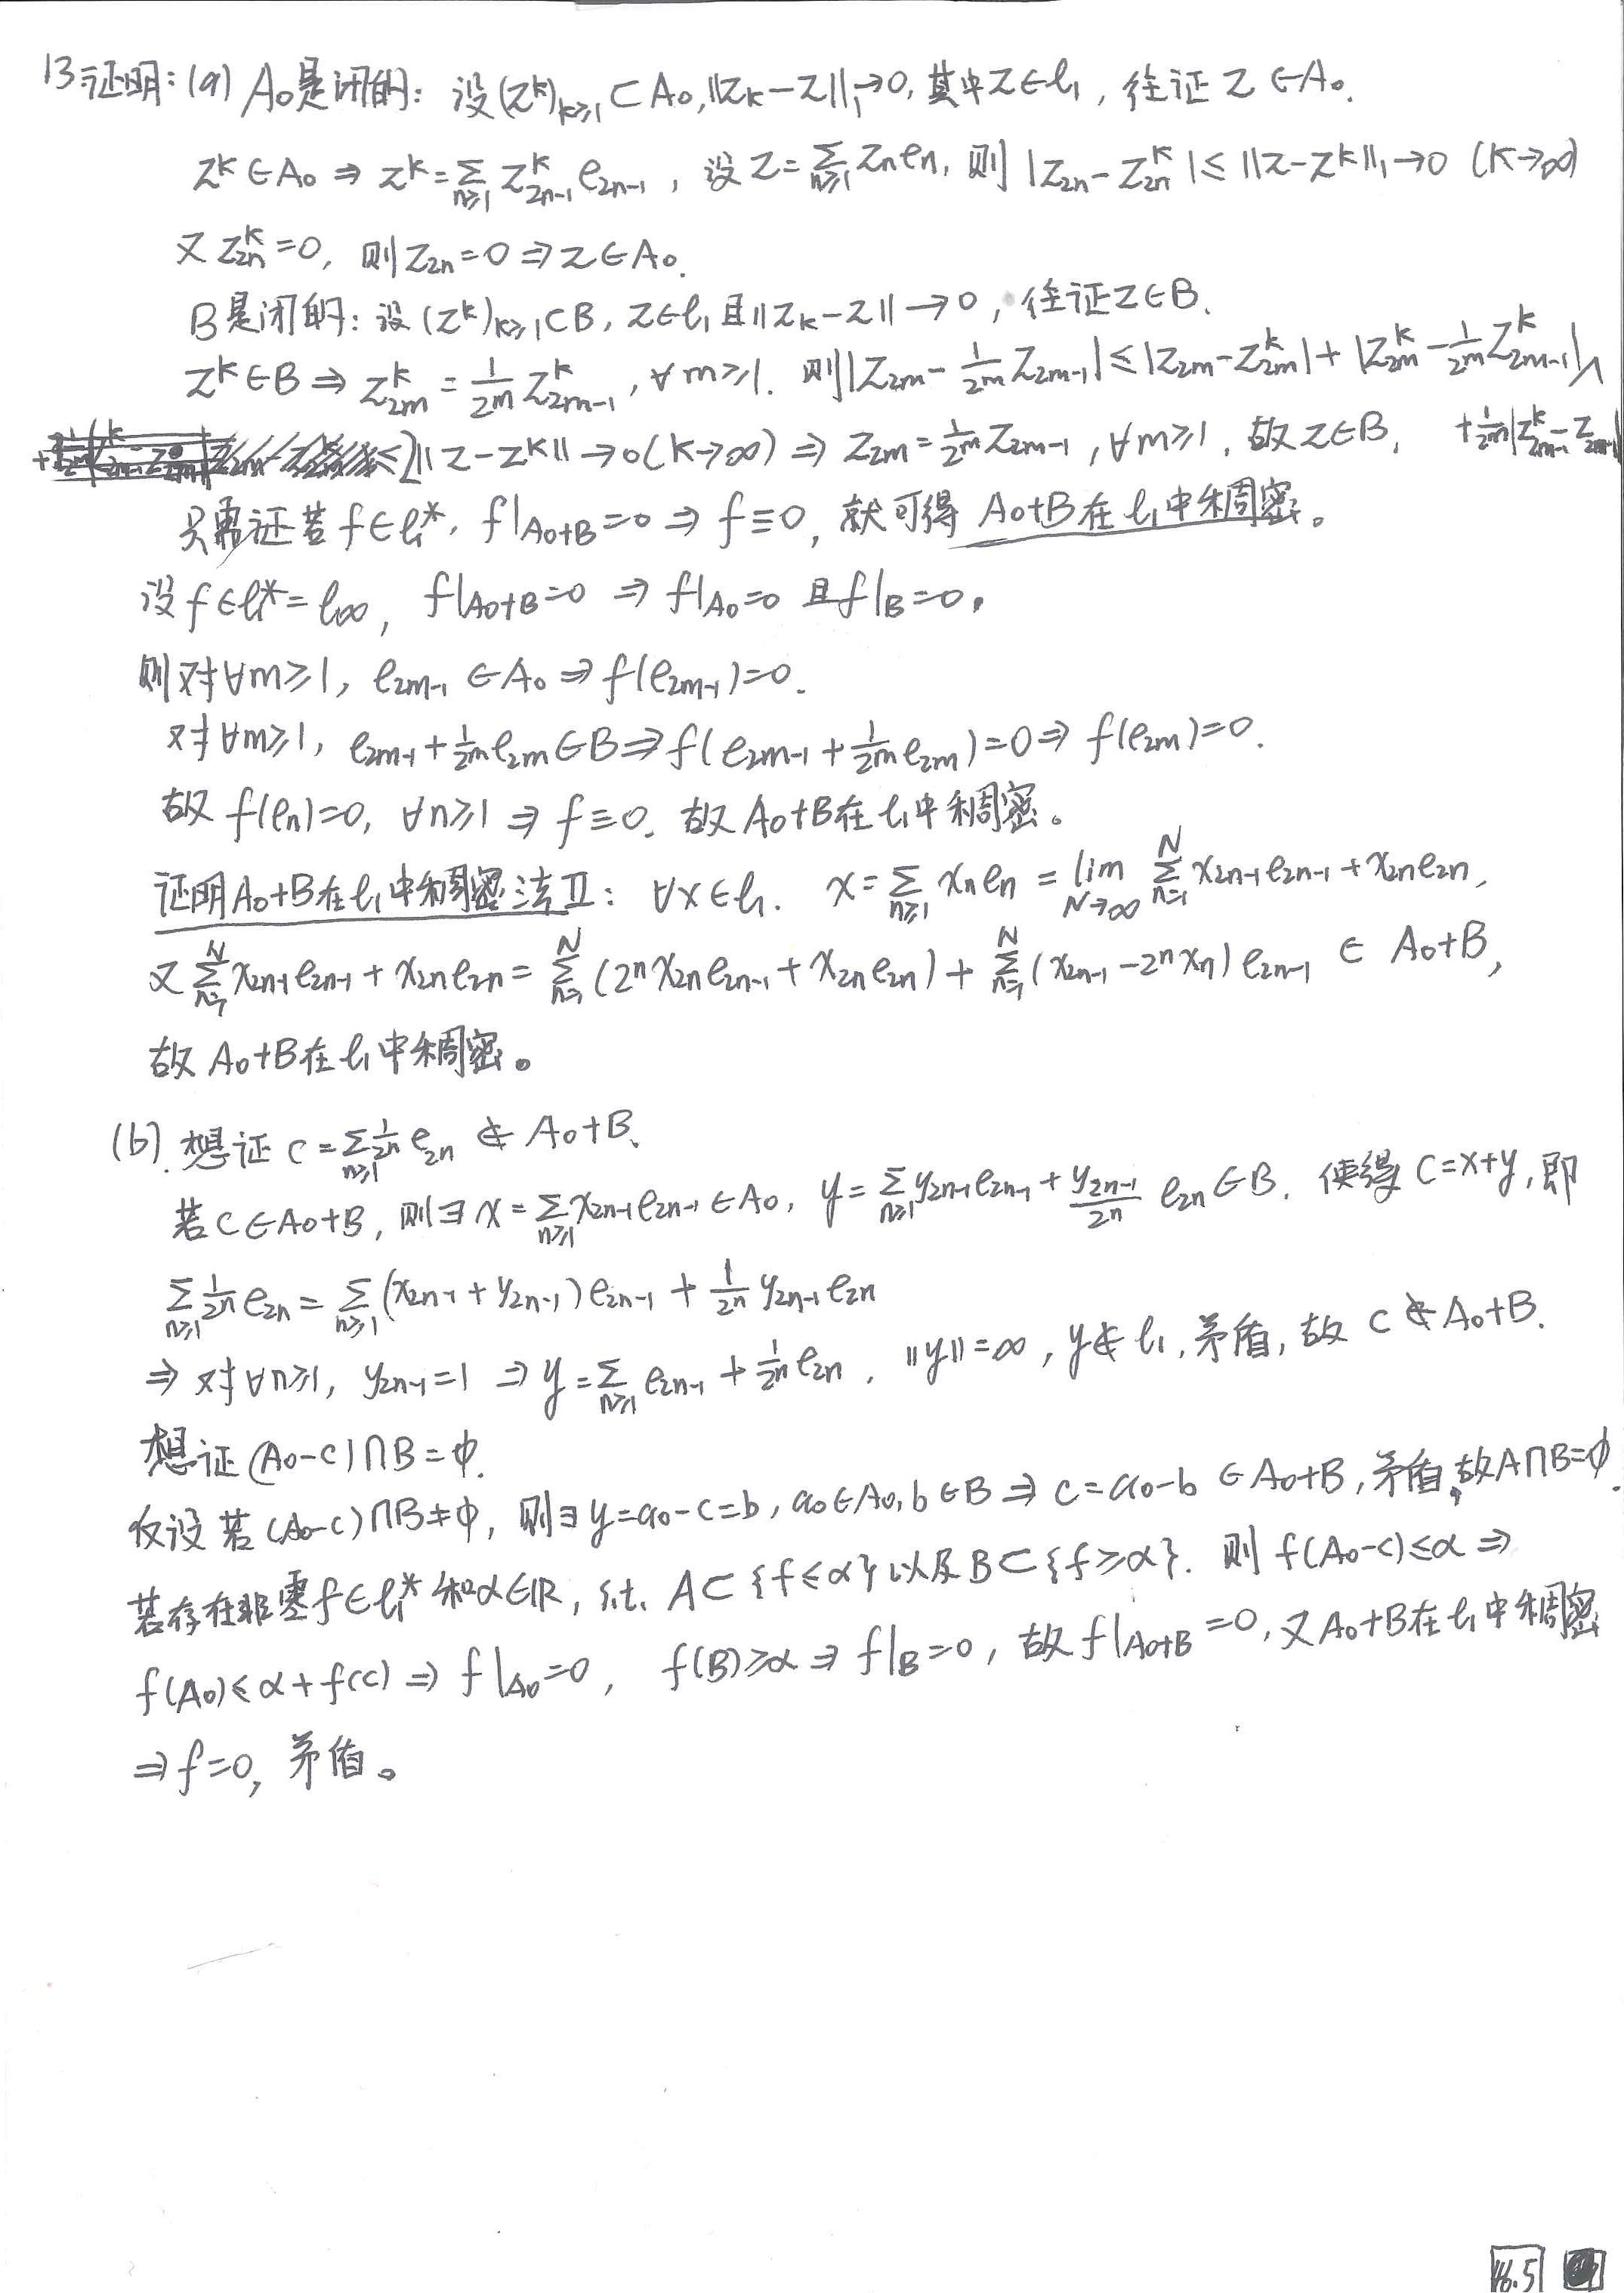 13 证明: (a) A₀是闭的: 设(zᵏ)_{k≥1}⊂A₀, ||z_k-z||₁→0, 其中z∈l₁, 往证 z∈A₀.
zᵏ∈A₀ ⇒ zᵏ=∑_{n≥1} z^k_{2n-1} e_{2n-1}, 设z=∑_{n≥1} z_n e_n, 则 |z_{2n}-z^k_{2n}|≤||z-zᵏ||₁→0 (k→∞)
又 z^k_{2n}=0, 则 z_{2n}=0 ⇒ z∈A₀.
B是闭的: 设(zᵏ)_{k≥1}⊂B, z∈l₁且||z_k-z||→0, 往证z∈B.
zᵏ∈B ⇒ z^k_{2m}=\frac{1}{2^m} z^k_{2m-1}, ∀m≥1. 则|z_{2m}-\frac{1}{2^m}z_{2m-1}|≤|z_{2m}-z^k_{2m}|+|z^k_{2m}-\frac{1}{2^m}z^k_{2m-1}|
+\frac{1}{2^m}|z^k_{2m-1}-z_{2m-1}| ≤2||z-zᵏ||→0 (k→∞) ⇒ z_{2m}=\frac{1}{2^m}z_{2m-1}, ∀m≥1, 故z∈B,
只需证若f∈l₁*, f|_{A₀+B}=0 ⇒ f≡0, 就可得 A₀+B在l₁中稠密。
设f∈l₁*=l∞, f|_{A₀+B}=0 ⇒ f|_{A₀}=0 且f|_B=0。
则对∀m≥1, e_{2m-1}∈A₀ ⇒ f(e_{2m-1})=0.
对∀m≥1, e_{2m-1}+\frac{1}{2^m}e_{2m}∈B ⇒ f(e_{2m-1}+\frac{1}{2^m}e_{2m})=0 ⇒ f(e_{2m})=0.
故f(e_n)=0, ∀n≥1 ⇒ f≡0. 故A₀+B在l₁中稠密。
证明A₀+B在l₁中稠密法Ⅱ: ∀x∈l₁. x=∑_{n≥1} x_n e_n=lim_{N→∞} ∑_{n=1}^N x_{2n-1}e_{2n-1}+x_{2n}e_{2n},
又∑_{n=1}^N x_{2n-1}e_{2n-1}+x_{2n}e_{2n}=∑_{n=1}^N (2ⁿx_{2n}e_{2n-1}+x_{2n}e_{2n})+∑_{n=1}^N (x_{2n-1}-2ⁿx_n)e_{2n-1} ∈ A₀+B,
故A₀+B在l₁中稠密。
(b). 想证 c=∑_{n≥1}\frac{1}{2^n}e_{2n} ∉ A₀+B.
若c∈A₀+B, 则∃x=∑_{n≥1}x_{2n-1}e_{2n-1}∈A₀, y=∑_{n≥1}y_{2n-1}e_{2n-1}+\frac{y_{2n-1}}{2^n}e_{2n}∈B. 使得c=x+y, 即
∑_{n≥1}\frac{1}{2^n}e_{2n}=∑_{n≥1}(x_{2n-1}+y_{2n-1})e_{2n-1}+\frac{1}{2^n}y_{2n-1}e_{2n}
⇒ 对∀n≥1, y_{2n-1}=1 ⇒ y=∑_{n≥1}e_{2n-1}+\frac{1}{2^n}e_{2n}. ||y||=∞, y∉l₁, 矛盾, 故 c∉A₀+B.
想证(A₀-c)∩B=φ.
反设若(A₀-c)∩B≠φ, 则∃y=a₀-c=b, a₀∈A₀, b∈B ⇒ c=a₀-b∈A₀+B, 矛盾。故A∩B=φ.
若存在非零f∈l₁*和α∈ℝ, s.t. A⊂{f≤α}以及B⊂{f≥α}. 则f(A₀-c)≤α ⇒
f(A₀)≤α+f(c) ⇒ f|_{A₀}=0, f(B)≥α ⇒ f|_B=0, 故f|_{A₀+B}=0, 又A₀+B在l₁中稠密
⇒ f=0, 矛盾。
16.5